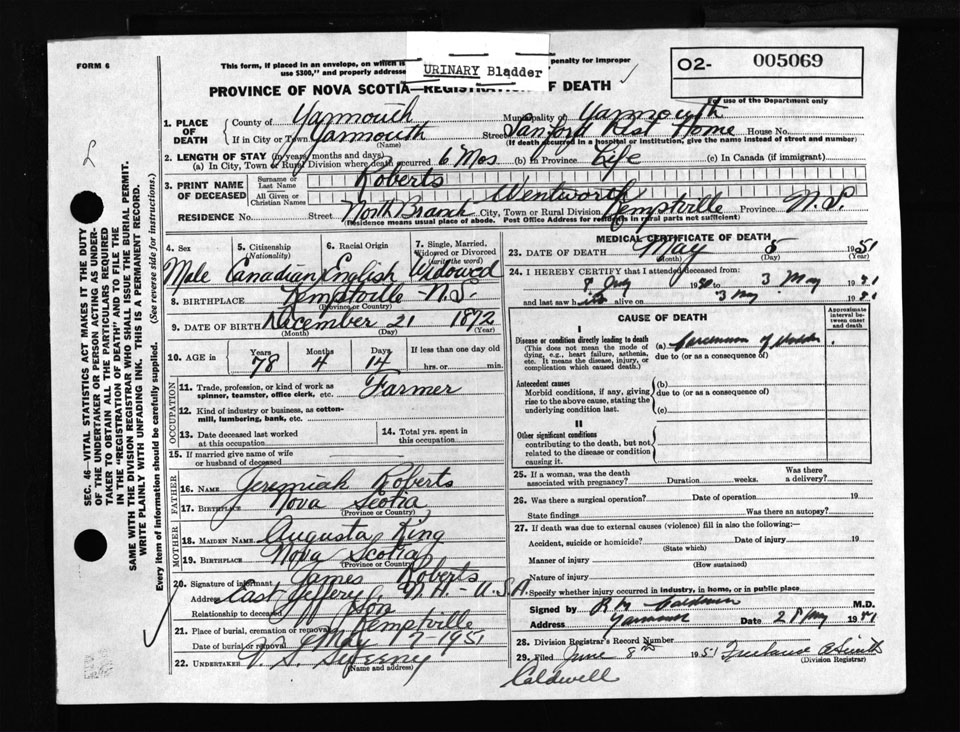 FORM 6
This form, if placed in an envelope, on which is penalty for improper
use $300," and properly addresse
URINARY Bladder
O2- 005069
PROVINCE OF NOVA SCOTIA—REGISTRATION OF DEATH
For use of the Department only
1. PLACE OF DEATH
County of Yarmouth Municipality of Yarmouth
If in City or Town Yarmouth Street Sanford Rest Home House No.
(Name) (If death occurred in a hospital or institution, give the name instead of street and number)
2. LENGTH OF STAY (in years months and days)
(a) In City, Town or Rural Division where death occurred 6 Mos. (b) in Province Life (c) In Canada (if immigrant)
3. PRINT NAME OF DECEASED
Surname or Last Name Roberts
All Given or Christian Names Wentworth
RESIDENCE No. Street North Branch City, Town or Rural Division Kemptville Province N.S.
(Residence means usual place of abode. Post Office Address for residents in rural parts not sufficient)
4. Sex 5. Citizenship (Nationality) 6. Racial Origin 7. Single, Married, Widowed or Divorced (write the word)
Male Canadian English Widowed
8. BIRTHPLACE Kemptville N.S.
(Province or Country)
9. DATE OF BIRTH December 21 1872
(Month) (Day) (Year)
10. AGE in Years Months Days If less than one day old
78 4 14 hrs. or min.
OCCUPATION
11. Trade, profession, or kind of work as
spinner, teamster, office clerk, etc. Farmer
12. Kind of industry or business, as cotton-
mill, lumbering, bank, etc.
13. Date deceased last worked
at this occupation
14. Total yrs. spent in
this occupation
15. If married give name of wife
or husband of deceased
FATHER
16. NAME Jeremiah Roberts
17. BIRTHPLACE Nova Scotia
(Province or Country)
MOTHER
18. MAIDEN NAME Augusta King
19. BIRTHPLACE Nova Scotia
(Province or Country)
20. Signature of informant James Roberts
Address East Jeffery, N.H. - U.S.A.
Relationship to deceased Son
21. Place of burial, cremation or removal Kemptville
Date of burial or removal May 7 - 1951
22. UNDERTAKER V. S. Sweeny
(Name and address)
MEDICAL CERTIFICATE OF DEATH
23. DATE OF DEATH May 5 1951
(Month) (Day) (Year)
24. I HEREBY CERTIFY that I attended deceased from
8 July 1950 to 3 May 1951
and last saw h alive on 3 May 1951
CAUSE OF DEATH
Approximate interval between onset and death
I
Disease or condition directly leading to death (a) Carcinoma of bladder
(This does not mean the mode of
dying, e.g., heart failure, asthenia,
etc. It means the disease, injury, or
complication which caused death.)
due to (or as a consequence of)
Antecedent causes (b)
Morbid conditions, if any, giving
rise to the above cause, stating the
underlying condition last.
due to (or as a consequence of)
(c)
II
Other significant conditions
contributing to the death, but not
related to the disease or condition
causing it.
25. If a woman, was the death
associated with pregnancy? Duration weeks. Was there a delivery?
26. Was there a surgical operation? Date of operation 19
State findings Was there an autopsy?
27. If death was due to external causes (violence) fill in also the following:—
Accident, suicide or homicide? Date of injury 19
(State which)
Manner of injury
(How sustained)
Nature of injury
Specify whether injury occurred in industry, in home, or in public place
Signed by R M Caldwell M.D.
Address Yarmouth Date 28 May 1951
28. Division Registrar's Record Number
29. Filed June 8th 1951
(Division Registrar)
Caldwell
SEC. 46—VITAL STATISTICS ACT MAKES IT THE DUTY
OF THE UNDERTAKER OR PERSON ACTING AS UNDER-
TAKER TO OBTAIN ALL THE PARTICULARS REQUIRED
IN THE "REGISTRATION OF DEATH" AND TO FILE THE
SAME WITH THE DIVISION REGISTRAR WHO SHALL ISSUE THE BURIAL PERMIT.
WRITE PLAINLY WITH UNFADING INK. THIS IS A PERMANENT RECORD.
Every item of information should be carefully supplied. (See reverse side for instructions.)